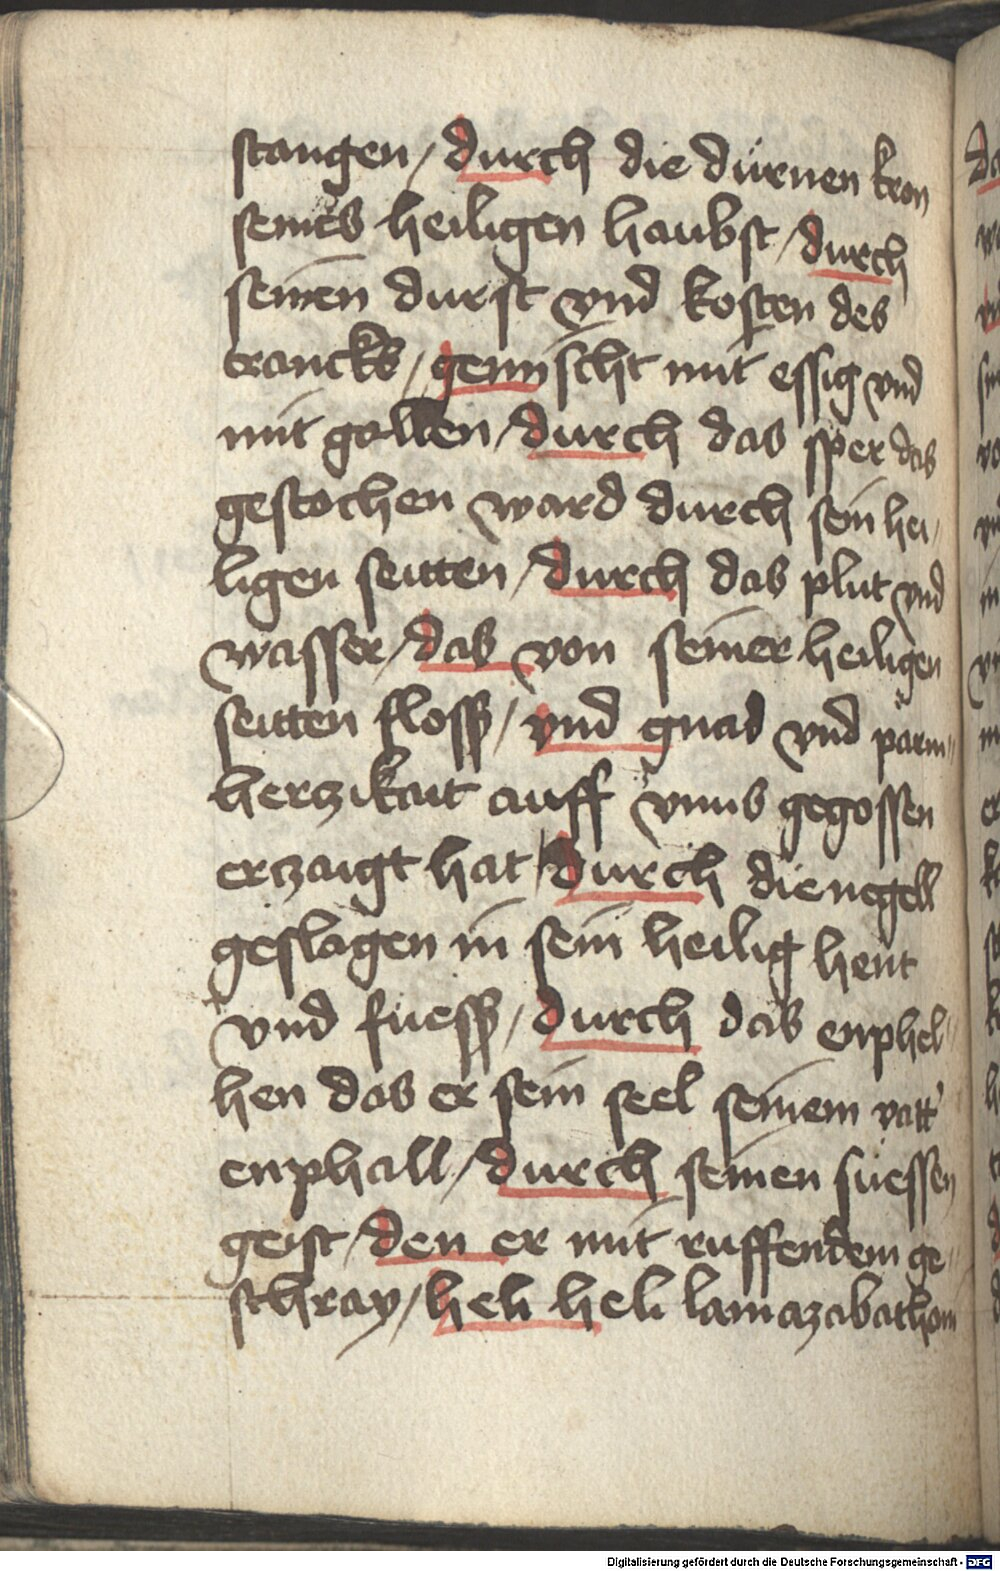 stangen / durch die dürnen kron
seines heiligen haubst / durch
seinen durst vnd kosten des
tranckß / gemischt mit essig vnd
mit gallen / durch das sper das
gestochen ward durch sein hei¬
ligen seitten / durch das plut vnd
wasser / das von seiner heiligen
seitten flossz / vnd gnad vnd parm¬
herczikait auff vnns gegossen
erczaigt hat / durch die negell
geslagen in sein heilig hent
vnd füessz / durch das enphel¬
hen das er sein seel seinem vatt'
enphall / durch seinen süessen
geist / den er mit ruffendem ge¬
schray / heli heli lamazabathani
Digitalisierung gefördert durch die Deutsche Forschungsgemeinschaft - DFG